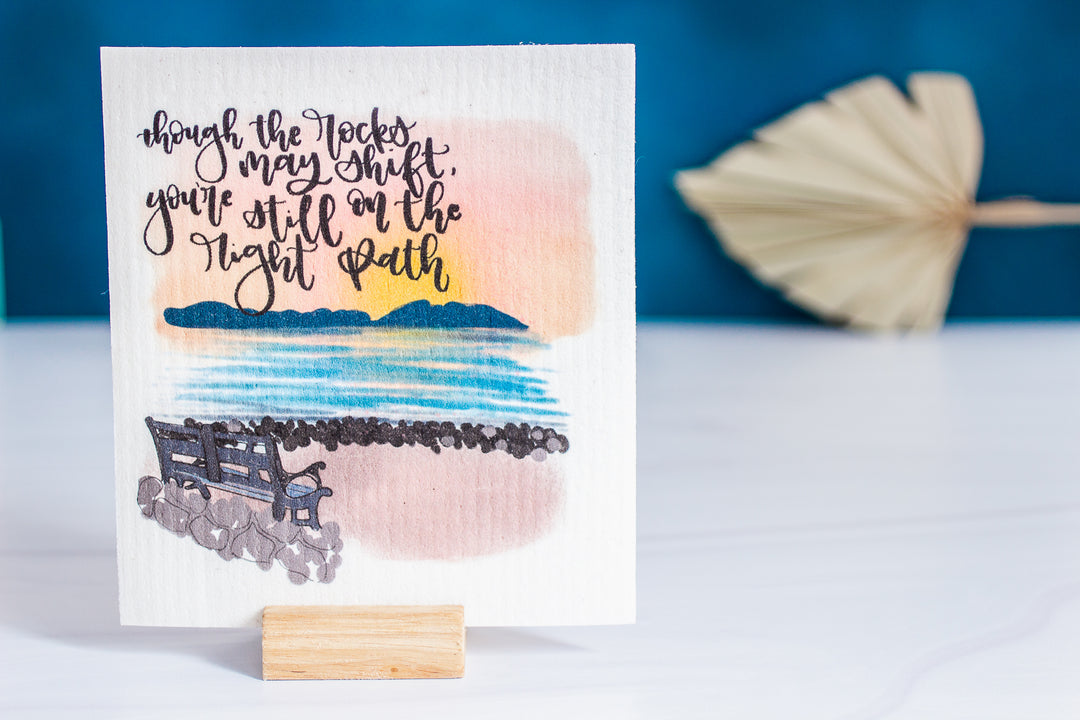 though the rocks
may shift,
you're still on the
right path